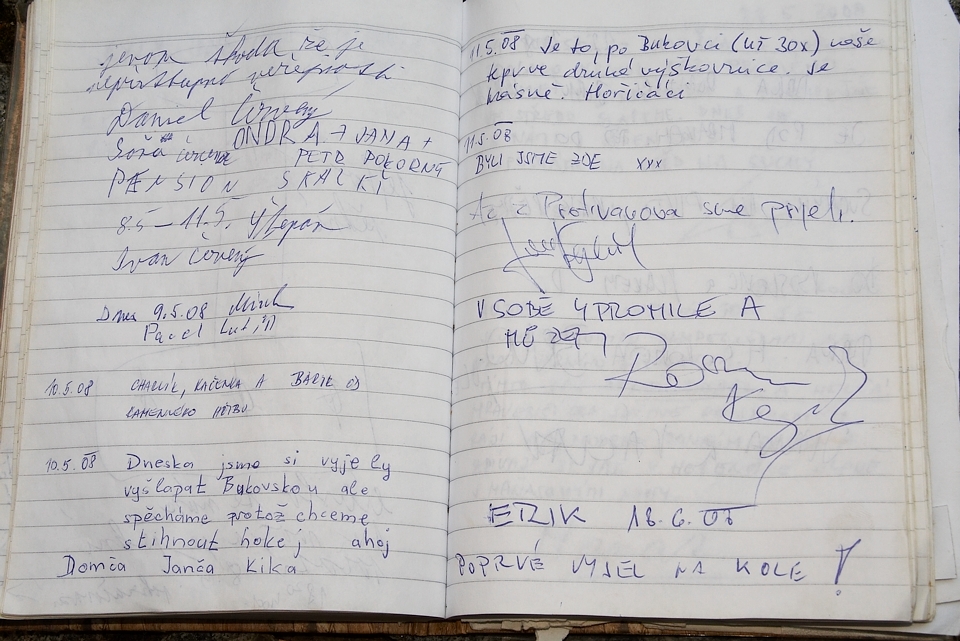 jenom škoda, že je
nepřístupná veřejnosti
Daniel Černý
Soňa ONDRA + JANA +
PETR POKORNÝ
PENSION SKALKÍ
8.5 – 11.5.
Ivan Černý
Dnes 9.5.08
Pavel
10.5.08 CHARLÍK, KAČENKA A BARIK OD
KAMENICKÉHO
10.5.08 Dneska jsmo si vyjely
vyšlapat Bukovsko u ale
spěcháme protož chceme
stihnout hokej ahoj
Domča Janča Kika
11.5.08 Je to, po Bukovci (už 30x) naše
teprve druhá výškovnice. Je
krásné. Hořičáci
11.5.08
BYLI JSME ZDE xxx
Až z Protivanova sme prijeli.
V SOBĚ 4 PROMILE A
ERIK 18.6.08
POPRVÉ VYJEL NA KOLE!